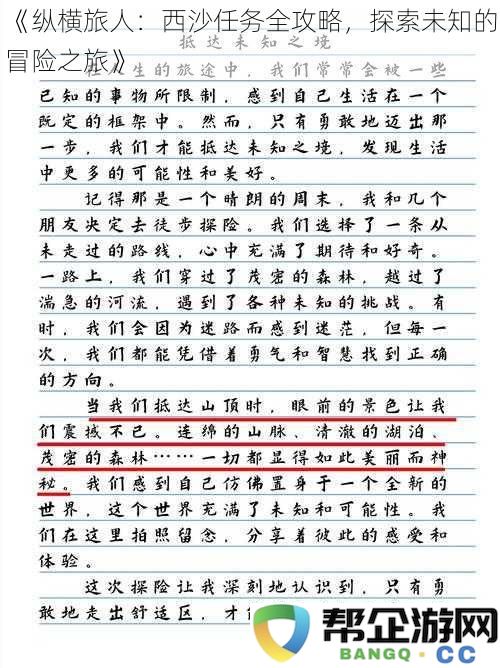 《纵横旅人：西沙任务全攻略，探索未知的
冒险之旅》
抵达未知之境
在人生的旅途中，我们常常会被一些
已知的事物所限制，感到自己生活在一个
既定的框架中。然而，只有勇敢地迈出那
一步，我们才能抵达未知之境，发现生活
中更多的可能性和美好。
记得那是一个晴朗的周末，我和几个
朋友决定去徒步探险。我们选择了一条从
未走过的路线，心中充满了期待和好奇。
一路上，我们穿过了茂密的森林，越过了
湍急的河流，遇到了各种未知的挑战。有
时，我们会因为迷路而感到迷茫，但每一
次，我们都能凭借着勇气和智慧找到正确
的方向。
当我们抵达山顶时，眼前的景色让我
们震撼不已。连绵的山脉、清澈的湖泊、
茂密的森林……一切都显得如此美丽而神
秘。我们感到自己仿佛置身于一个全新的
世界，这个世界充满了未知和可能性。我
们在这里拍照留念，分享着彼此的感受和
体验。
这次探险让我深刻地认识到，只有勇
敢地走出舒适区，才
帮企游网
BANGQ.CC